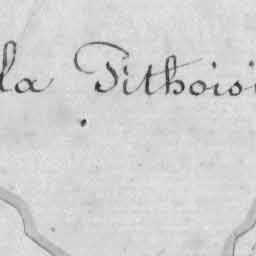 la Tithoisi